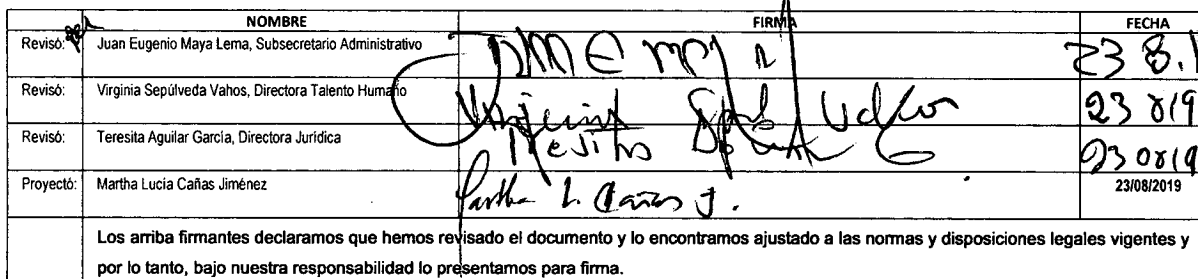 NOMBRE FIRMA FECHA
Revisó: Juan Eugenio Maya Lema, Subsecretario Administrativo 23 8.1
Revisó: Virginia Sepúlveda Vahos, Directora Talento Humano Virginia Sepúlveda 23 0819
Revisó: Teresita Aguilar García, Directora Jurídica Teresita 23 0819
Proyectó: Martha Lucía Cañas Jiménez Martha L. Cañas J. 23/08/2019
Los arriba firmantes declaramos que hemos revisado el documento y lo encontramos ajustado a las normas y disposiciones legales vigentes y
por lo tanto, bajo nuestra responsabilidad lo presentamos para firma.